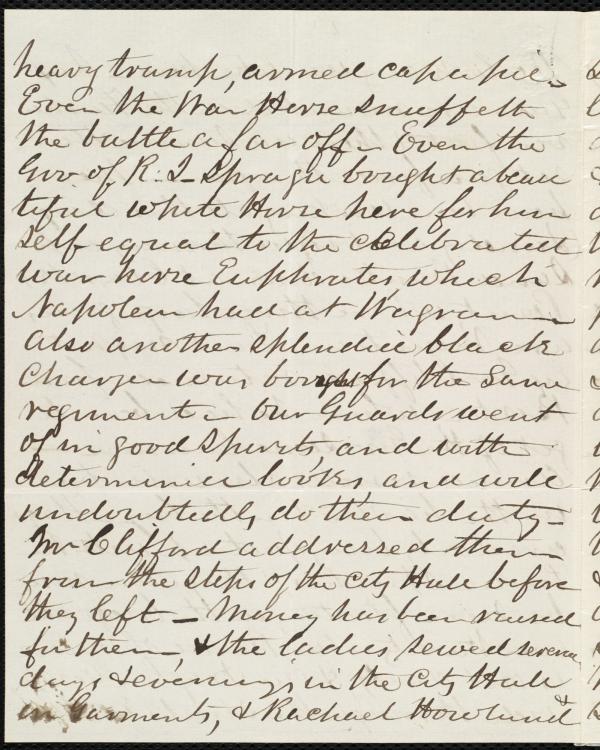 heavy tramp, armed cap a pie -
Even the War Horse snuffeth
the battle afar off - Even the
Gov of R. I - Sprague bought a beau
tiful white Horse here for him
self equal to the celebrated
war horse Euphrates, which
Napoleon had at Wagram -
also another splendid black
Charger was bought for the same
regiment - Our Guards went
of in good spirits, and with
determined looks, and will
undoubtedly do their duty -
Mr Clifford addressed them
from the steps of the City Hall before
they left - Money has been raised
for them, & the ladies sewed several
days & evenings in the City Hall
on Garments, & Rachael Howland &